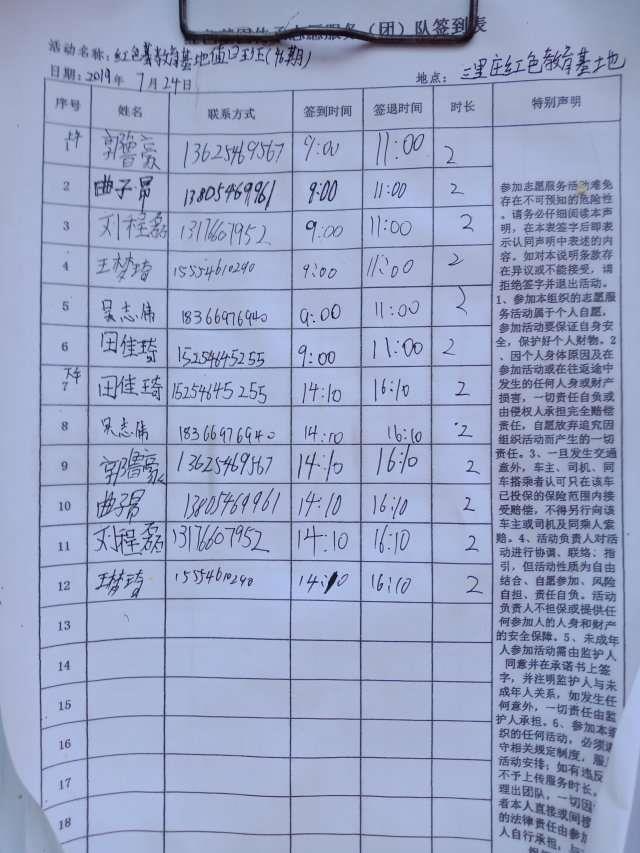 志愿服务（团）队签到表
活动名称：红色教育基地值日
日期：2019年 7月24日
地点：三里庄红色教育基地
序号 姓名 联系方式 签到时间 签退时间 时长 特别声明
上午
1 13625469567 9:00 11:00 2
2 曲子昂 13805469961 9:00 11:00 2
3 刘程磊 13176607952 9:00 11:00 2
4 王梦琦 15554610290 9:00 11:00 2
5 吴志伟 18366976940 9:00 11:00 2
6 田佳琦 15254645255 9:00 11:00 2
下午
7 田佳琦 15254645255 14:10 16:10 2
8 吴志伟 18366976940 14:10 16:10 2
9 13625469567 14:10 16:10 2
10 曲子昂 13805469961 14:10 16:10 2
11 刘程磊 13176607952 14:10 16:10 2
12 王梦琦 15554610290 14:10 16:10 2
13
14
15
16
17
18
参加志愿服务活动难免
存在不可预知的危险性
。请务必仔细阅读本声
明，在本表签字后即表
示认同声明中表述的内
容。如对本说明条款存
在异议或不能接受，请
拒绝签字并退出活动。
1、参加本组织的志愿服
务活动属于个人自愿，
参加活动要保证自身安
全，保护好个人财物。2
、因个人身体原因及在
参加活动或在往返途中
发生的任何人身或财产
损害，一切责任自负或
由侵权人承担完全赔偿
责任，自愿放弃追究因
组织活动而产生的一切
责任。3、一旦发生交通
意外，车主、司机、同
车搭乘者认可只在该车
已投保的保险范围内接
受赔偿，不得另行向该
车主或司机及同乘人索
赔。4、活动负责人对活
动进行协调、联络、指
引，但活动性质为自由
结合、自愿参加、风险
自担、责任自负。活动
负责人不担保或提供任
何参加人的人身和财产
的安全保障。5、未成年
人参加活动需由监护人
同意并在承诺书上签
字，并注明监护人与未
成年人关系，如发生任
何意外，一切责任由监
护人承担。6、参加本组
织的任何活动，必须遵
守相关规定制度，服
活动安排；如有违反
不予上传服务时长。
理出团队，一切因
者本人直接或间接
的法律责任由参加
人自行承担，与